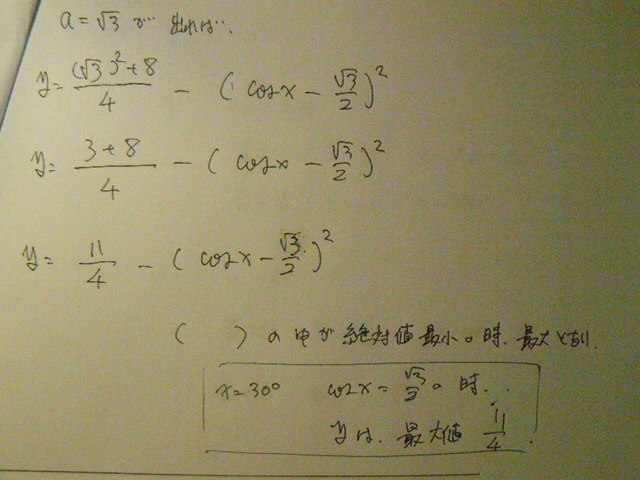 a=√3が 出れば、
y= ((√3)²+8)/4 - (cosx - √3/2)²
y= (3+8)/4 - (cosx - √3/2)²
y= 11/4 - (cosx - √3/2)²
(  )の中が絶対値最小の時、最大となり、
x=30° cosx=√3/2の時、
yは、最大値 11/4.